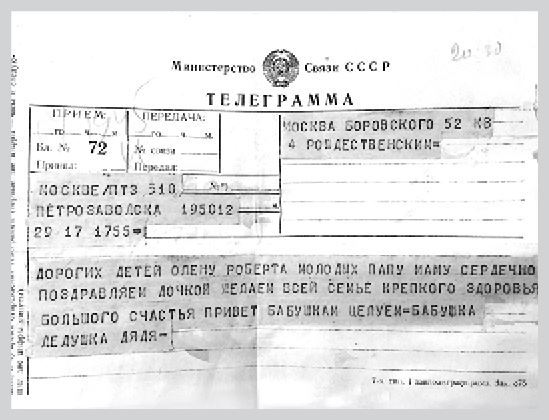 20-30
Министерство Связи СССР
ТЕЛЕГРАММА
ПРИЕМ:
го ч. м
Бл. № 72
Принял:
ПЕРЕДАЧА:
го ч. м.
№ связи
Передал:
МОСКВА БОРОВСКОГО 52 КВ
4 РОЖДЕСТВЕНСКИМ=
МОСКВЕ/ПТЗ 510
ПЕТРОЗАВОДСКА 195012
29 17 1755=
ДОРОГИХ ДЕТЕЙ ОЛЕНУ РОБЕРТА МОЛОДИХ ПАПУ МАМУ СЕРДЕЧНО
ПОЗДРАВЛЯЕМ ДОЧКОЙ ЖЕЛАЕМ ВСЕЙ СЕМЬЕ КРЕПКОГО ЗДОРОВЬЯ
БОЛЬШОГО СЧАСТЬЯ ПРИВЕТ БАБУШКАМ ЦЕЛУЕМ=БАБУШКА
ДЕДУШКА ДЯДЯ=